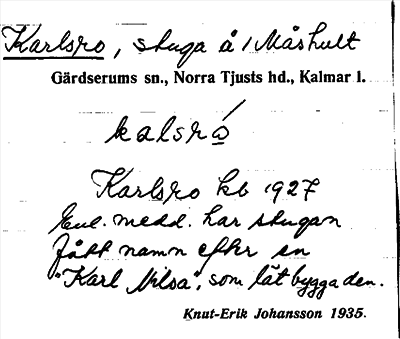 Karlsro, stuga å 1 Måshult
Gärdserums sn., Norra Tjusts hd., Kalmar l.
kalsró
Karlsro kb 1927
Enl. medd. har stugan
fått namn efter en
"Karl Nilsa", som lät bygga den.
Knut-Erik Johansson 1935.